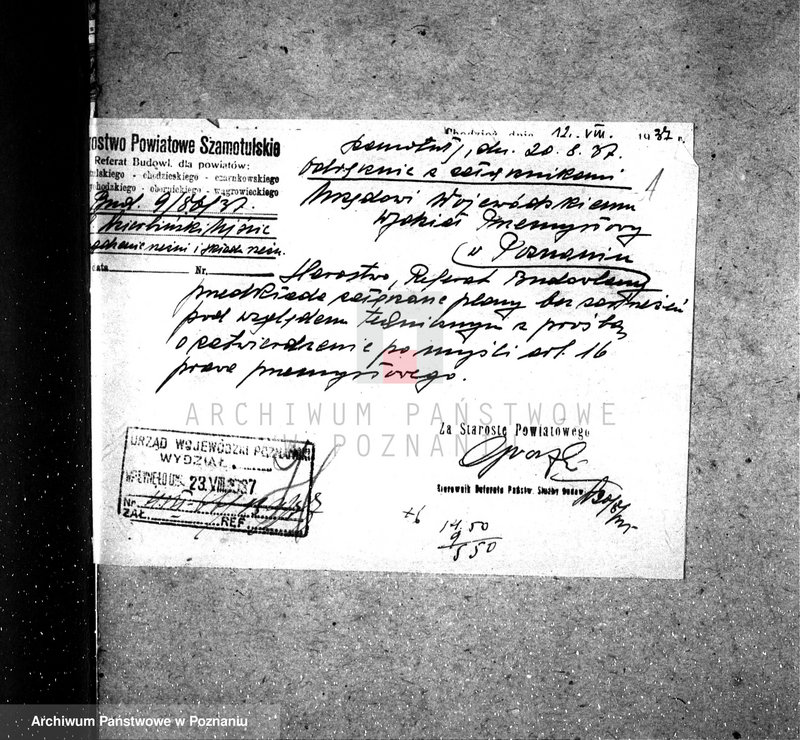 Chodzież dnia 12. VIII. 1937 r.
rostwo Powiatowe Szamotulskie
Referat Budowl. dla powiatów:
ulskiego - chodzieskiego - czarnkowskiego
chodzkiego - obornickiego - wągrowieckiego
Bud. 9/80/37.
Nr.
Szamotuły, dn. 20. 8. 37.
Odręcznie z załącznikami
Urzędowi Wojewódzkiemu
Wydział Przemysłowy
w Poznaniu
Starostwo, Referat Budowlany
przedkłada załączone plany bez zastrzeżeń
pod względem technicznym z prośbą
o zatwierdzenie po myśli art. 16
prawa przemysłowego.
Za Starostę Powiatowego
Kierownik Referatu Państw. Służby Budow.
URZĄD WOJEWÓDZKI POZNAŃSKI
WYDZIAŁ
WPŁYNĘŁO DN. 23. VIII. 1937
Nr.
ZAŁ. REF.
+6
14,50
9
5,50
ARCHIWUM PAŃSTWOWE
W POZNANIU
Archiwum Państwowe w Poznaniu